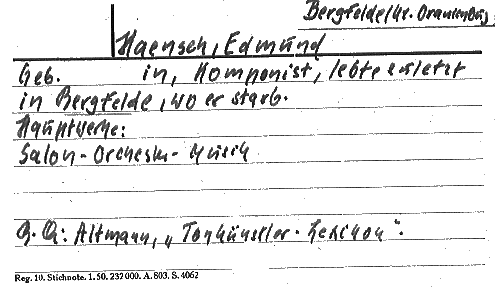 Bergfelde/Kr. Oranienbg.
Haensch, Edmund
Geb. in, Komponist, lebte zuletzt
in Bergfelde, wo er starb.
Hauptwerke:
Salon-Orchestr-Musik
Q.Qu: Altmann, „Tonkünstler-Lexikon".
Reg. 10. Stichnote. 1. 50. 232000. A. 803. S. 4062